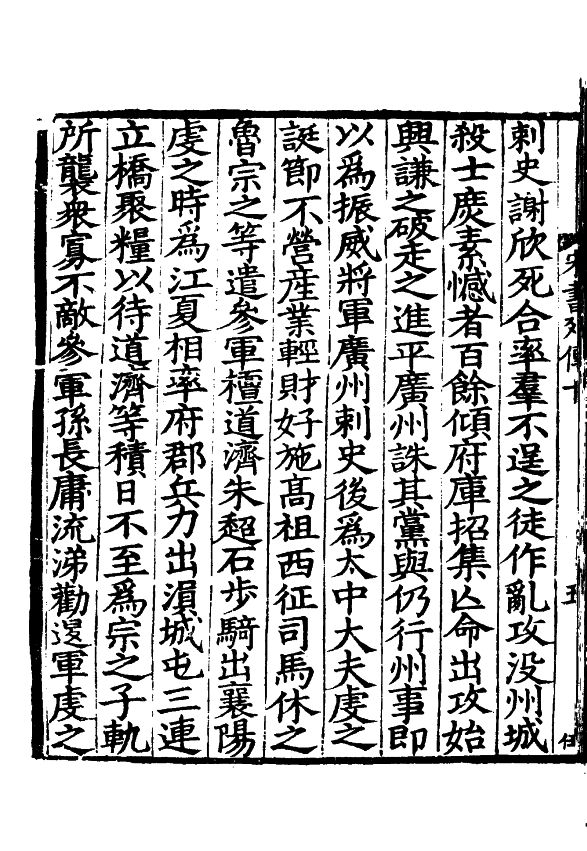 刺史謝欣死合率羣不逞之徒作亂攻没州城
殺士庶素憾者百餘傾府庫招集亡命出攻始
興謙之破走之進平廣州誅其黨與仍行州事即
以爲振威將軍廣州刺史後爲太中大夫虔之
誕節不營産業輕財好施高祖西征司馬休之
魯宗之等遣參軍檀道濟朱超石步騎出襄陽
虔之時爲江夏相率府郡兵力出溳城屯三連
立橋聚糧以待道濟等積日不至爲宗之子軌
所襲衆寡不敵參軍孫長庸流涕勸退軍虔之